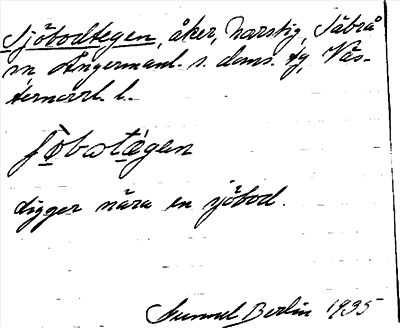 Sjöbodtegen, åker, Norstig, Säbrå
sn, Ångermanl. s. doms. tg, Väs-
ternorrl. l.
ʃö̀bωtä̀gen
Ligger nära en sjöbod.
Gunnel Berlin 1935